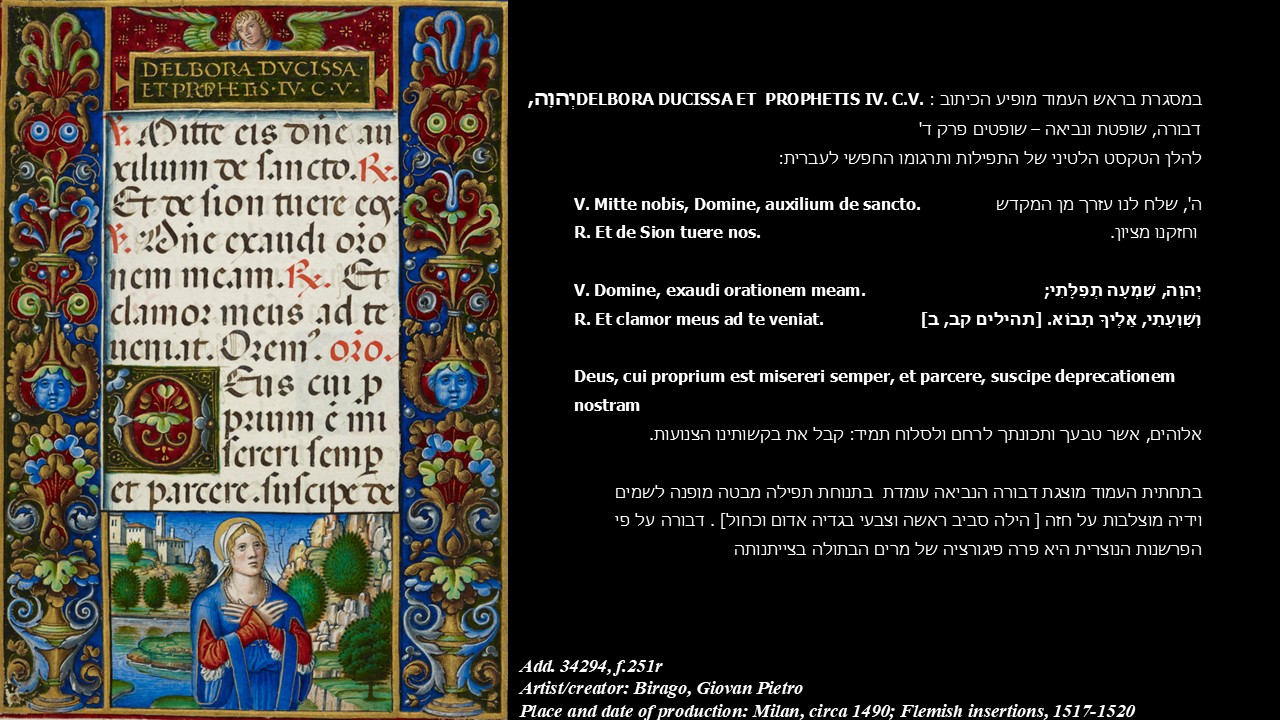 DELBORA DVCISSA·
ET·PRPHETIS·IV·C·V·
V. Mitte eis dñe au
xilium de sancto. R.
Et de sion tuere eos.
V. Dñe exaudi oro
nem meam. R. Et
clamor meus ad te
veniat. Orem9. oro.
Eus cui p
prium ē mi
sereri semp
et parcere. suscipe de
במסגרת בראש העמוד מופיע הכיתוב : DELBORA DUCISSA ET PROPHETIS IV. C.V.יְהוָה,
דבורה, שופטת ונביאה – שופטים פרק ד'
להלן הטקסט הלטיני של התפילות ותרגומו החפשי לעברית:
V. Mitte nobis, Domine, auxilium de sancto. ה', שלח לנו עזרך מן המקדש
R. Et de Sion tuere nos. וחזקנו מציון.
V. Domine, exaudi orationem meam. יְהוָה, שִׁמְעָה תְפִלָּתִי;
R. Et clamor meus ad te veniat. וְשַׁוְעָתִי, אֵלֶיךָ תָבוֹא. [תהילים קב, ב]
Deus, cui proprium est misereri semper, et parcere, suscipe deprecationem
nostram
אלוהים, אשר טבעך ותכונתך לרחם ולסלוח תמיד: קבל את בקשותינו הצנועות.
בתחתית העמוד מוצגת דבורה הנביאה עומדת בתנוחת תפילה מבטה מופנה לשמים
וידיה מוצלבות על חזה [ הילה סביב ראשה וצבעי בגדיה אדום וכחול] . דבורה על פי
הפרשנות הנוצרית היא פרה פיגורציה של מרים הבתולה בצייתנותה
Add. 34294, f.251r
Artist/creator: Birago, Giovan Pietro
Place and date of production: Milan, circa 1490; Flemish insertions, 1517-1520